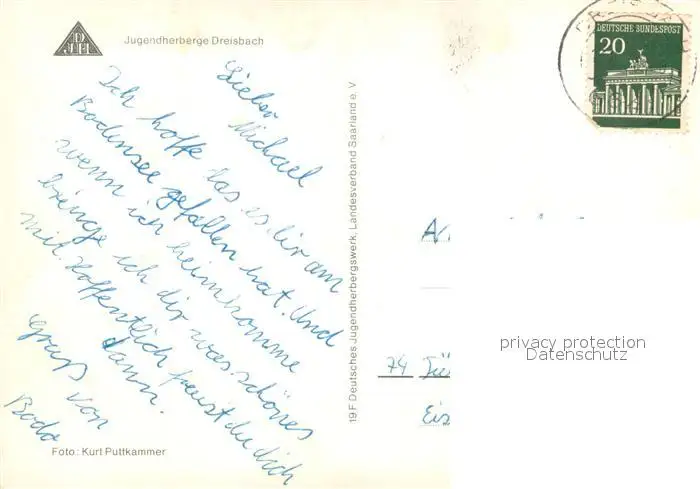 DJH
Jugendherberge Dreisbach
DEUTSCHE BUNDESPOST
20
Lieber
Michael
Ich hoffe das es dir am
Bodensee gefallen hat. Und
wenn ich heimkomme
bringe ich dir was schönes
mit. Hoffentlich freust du dich
dann.
Gruß von
Bodo
Foto: Kurt Puttkammer
19 F Deutsches Jugendherbergswerk, Landesverband Saarland e. V
74
privacy protection
Datenschutz